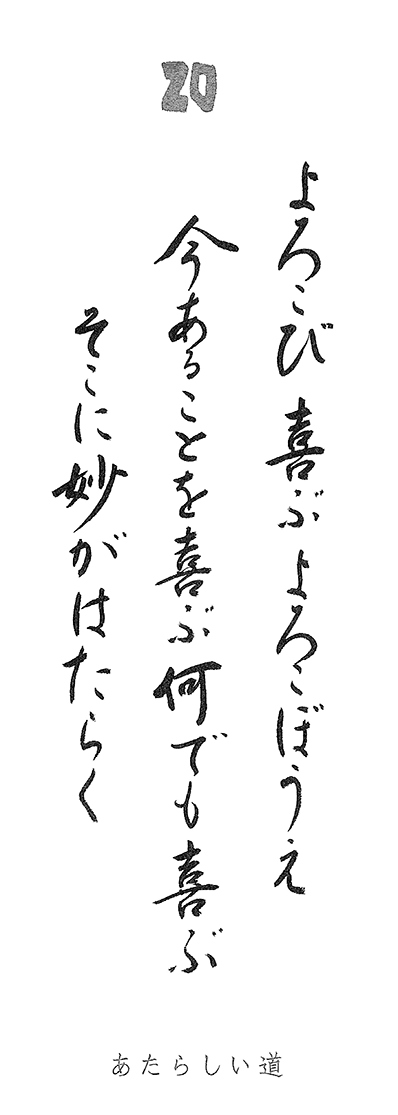 20
よろこび 喜ぶよろこぼうえ
今あることを喜ぶ何でも喜ぶ
そこに妙がはたらく
あたらしい道